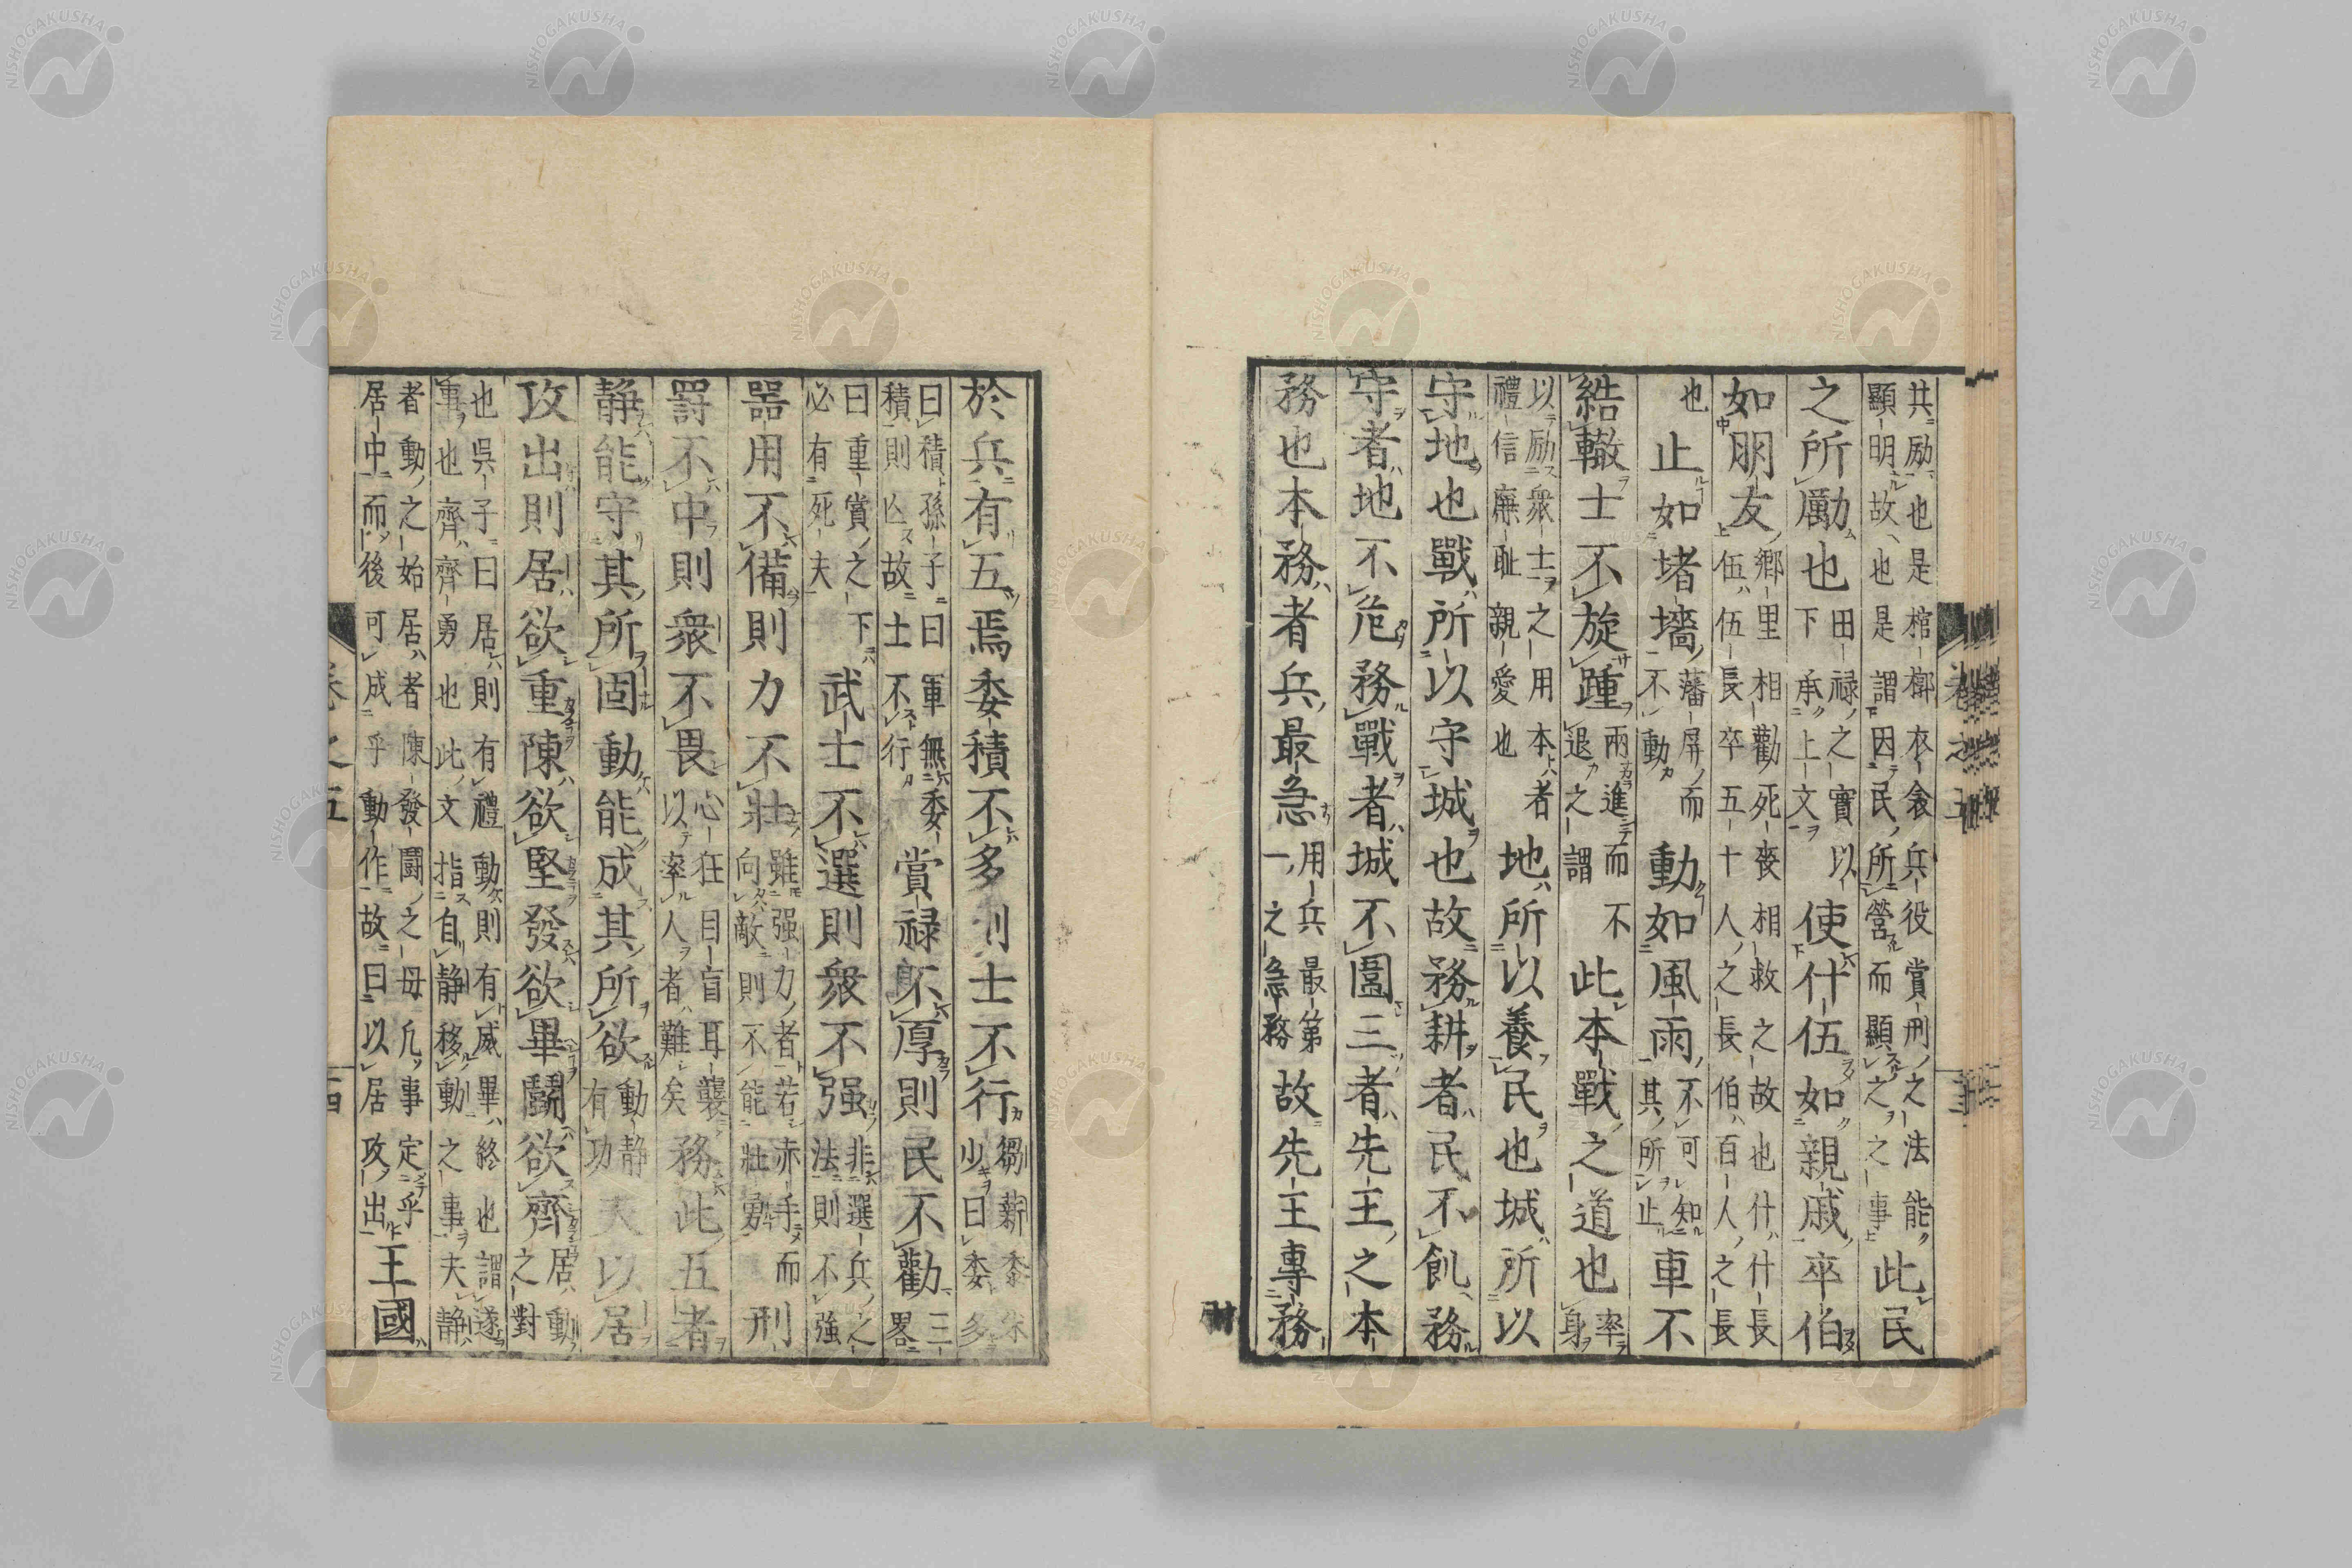 共励也是棺槨衣衾兵役賞刑之法能顯明故也是謂因民所營而顯之之事此民
之所勵也田禄之實以下承上文使什伍如親戚卒伯
如朋友郷里相勸死喪相救之故也什什長伍伍長卒五十人之長伯百人之長
也止如堵墻藩屏而不動動如風雨不可知其所止車不
結轍士不旋踵兩進而不退之謂此本戰之道也率身
以励衆士之用本者禮信廉耻親愛也地所以養民也城所以
守地也戰所以守城也故務耕者民不飢務
守者地不危務戰者城不圍三者先王之本
務也本務者兵最急用兵最第一之急務故先王專務
於兵有五焉委積不多則士不行芻薪黍米少曰委多
曰積孫子曰軍無委積則亾故士不行賞禄不厚則民不勸三畧
曰重賞之下必有死夫武士不選則衆不强非選兵之法則不強
噐用不備則力不壯雖强力者若赤手而向敵則不能壯勇刑
罸不中則衆不畏心狂目盲耳襲以率人者難矣務此五者
静能守其所固動能成其所欲動静有功夫以居
攻出則居欲重陳欲堅發欲畢鬭欲齊居動之對
也呉子曰居則有禮動則有威畢終也謂遂事也齊齊勇也此文指自静移動之事夫静
者動之始居者陳發闘之母凢事定乎居中而後可成乎動作故曰以居攻出王國
卷之五
十四